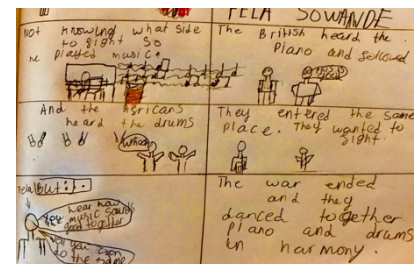 FELA SOWANDE
Not knowing what side
to fight so
he played music.
The British heard the
Piano and followed
And the Africans
heard the drums
Whoa
They entered the same
place. They wanted to
fight.
But...
hear how
music sounds
good together
The war ended
and they
danced together
piano and drums
in harmony.